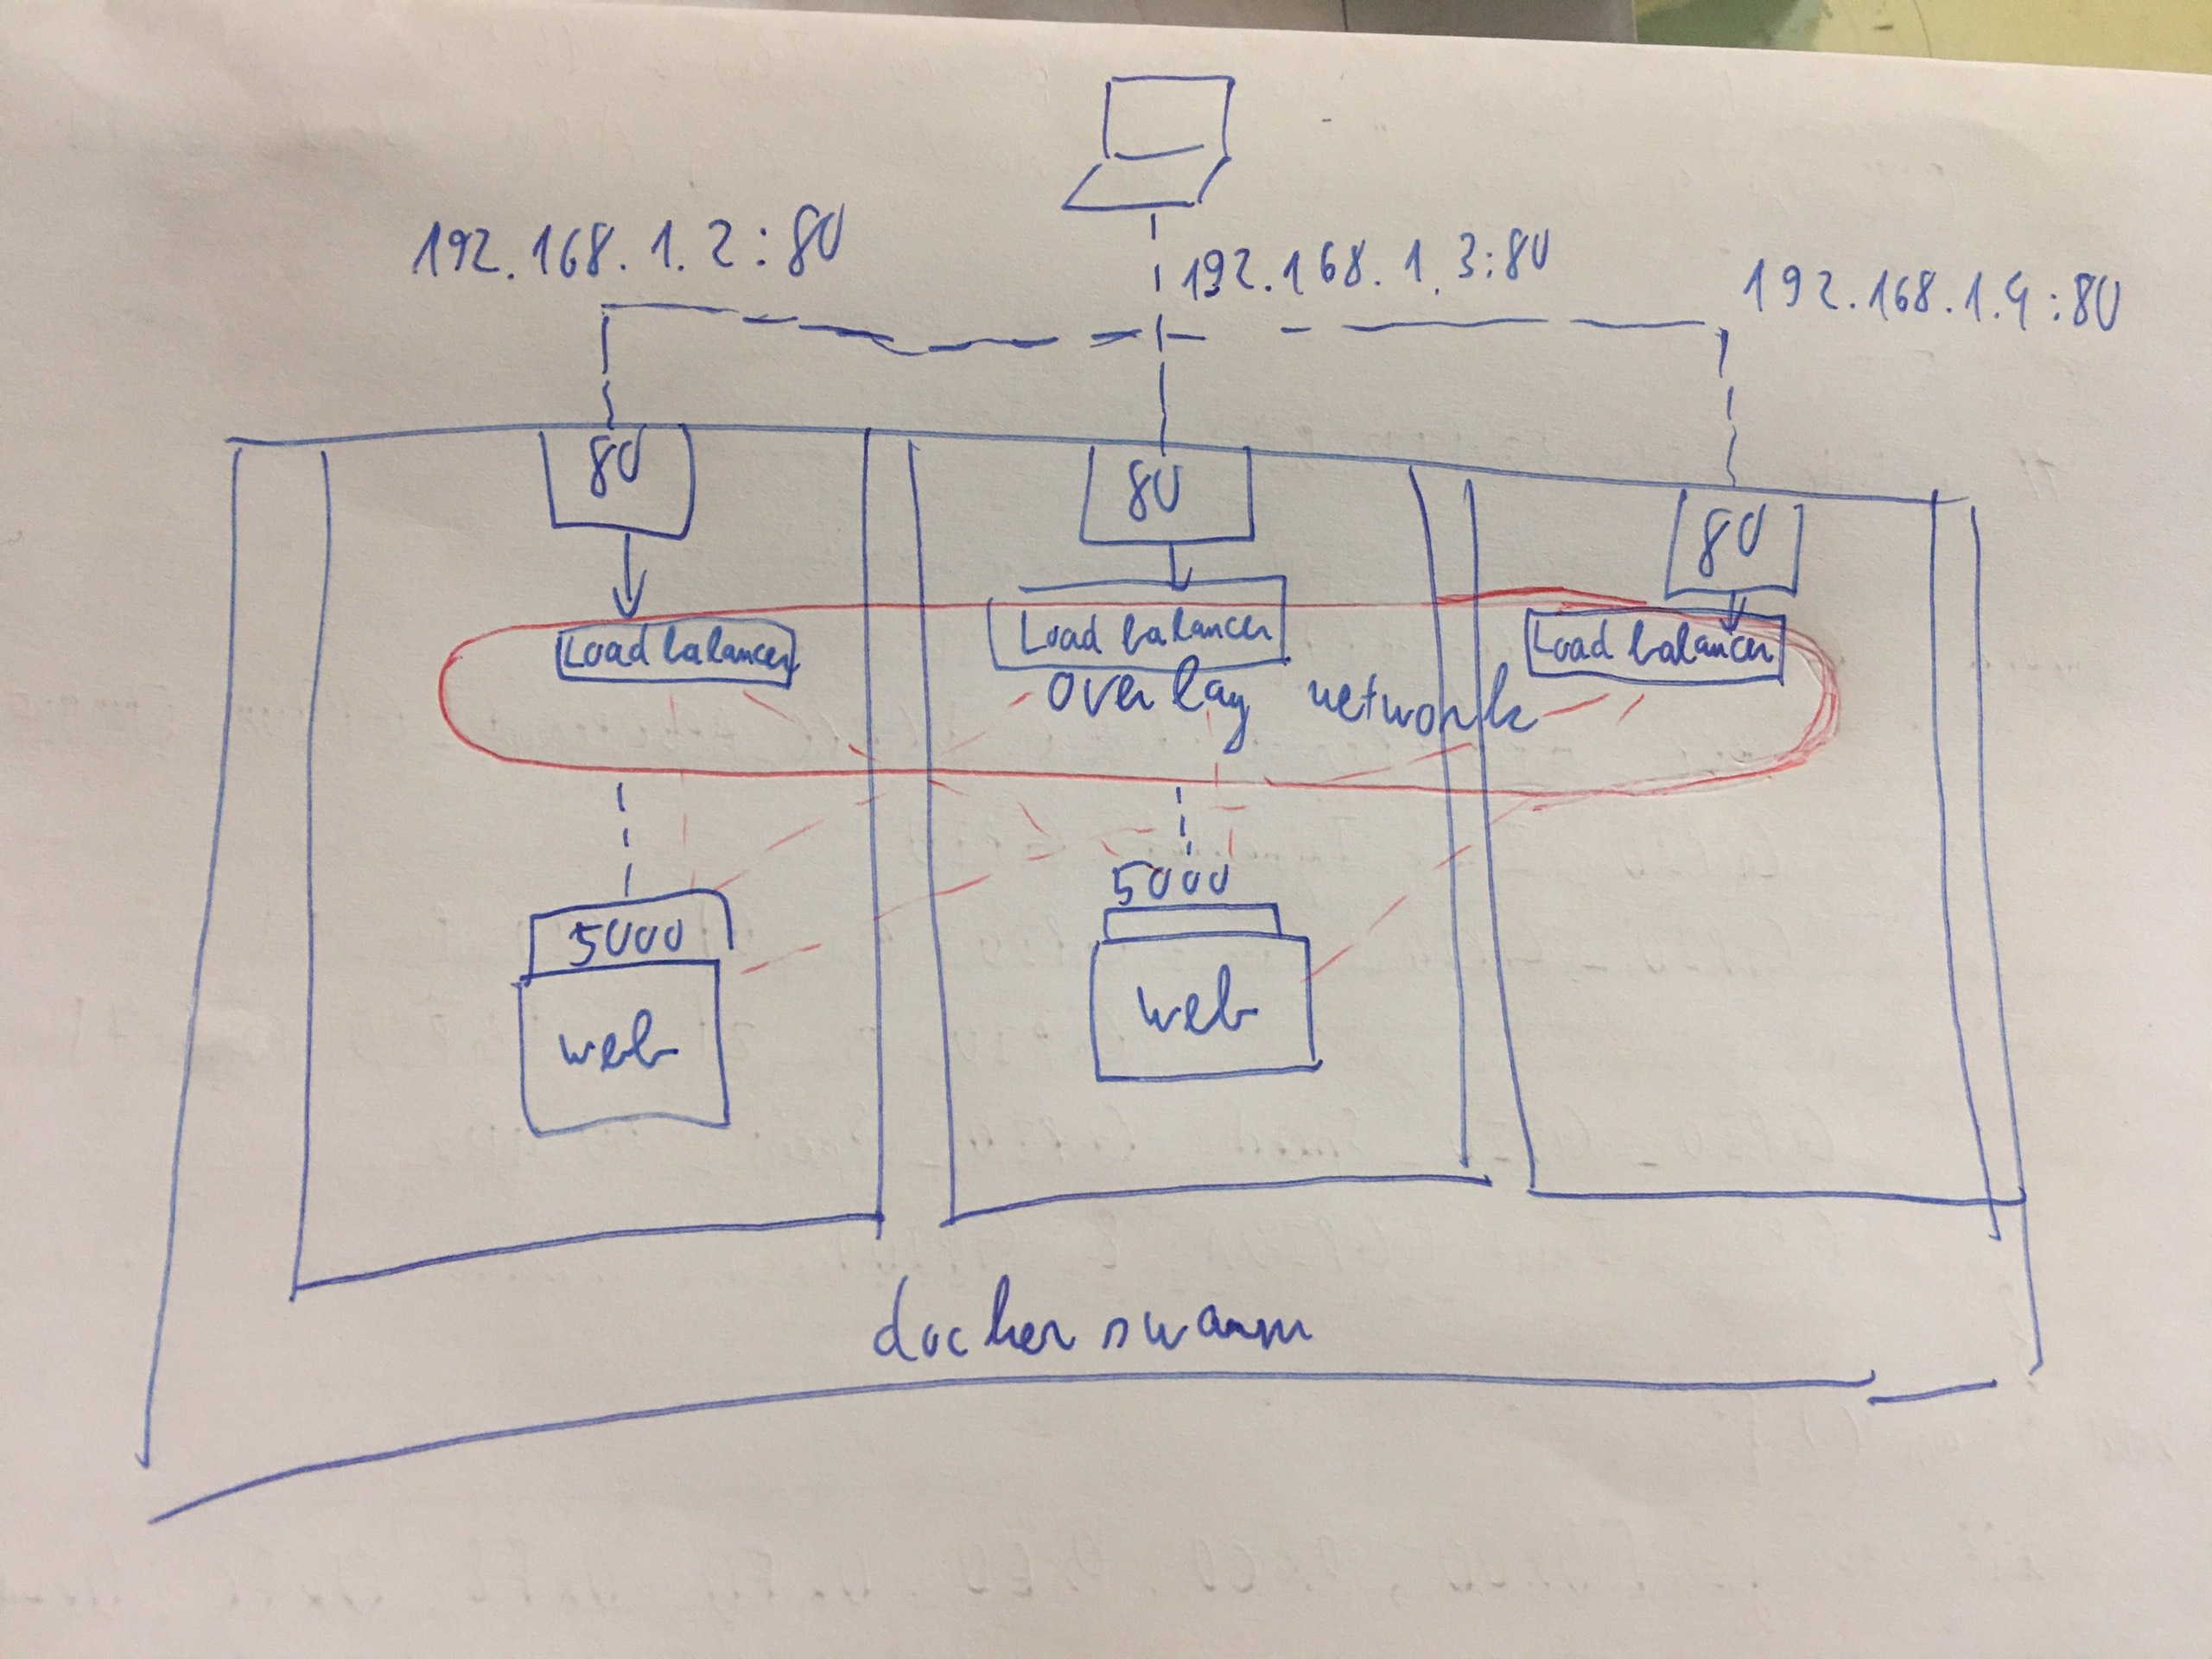 192.168.1.2:80
192.168.1.3:80
192.168.1.4:80
80
80
80
Load balancer
Load balancer
Load balancer
overlay network
5000
5000
web
web
docker swarm